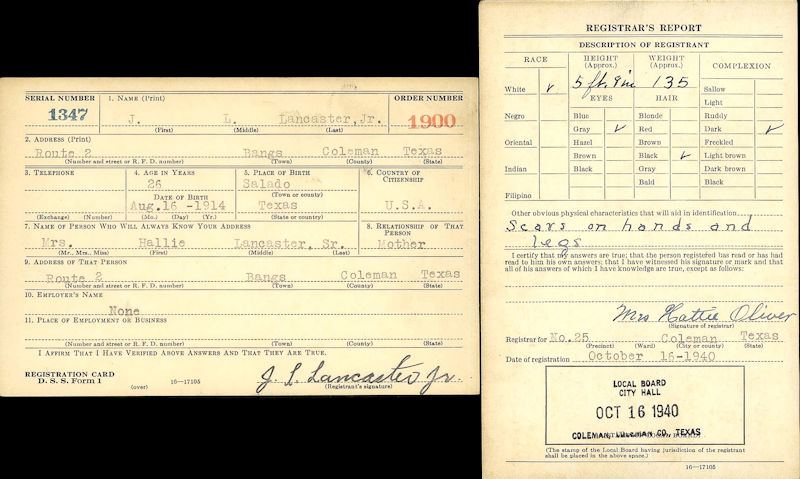 SERIAL NUMBER
1. NAME (Print)
ORDER NUMBER
1347
J. L. Lancaster, Jr.
1900
(First) (Middle) (Last)
2. ADDRESS (Print)
Route 2 Bangs Coleman Texas
(Number and street or R. F. D. number) (Town) (County) (State)
3. TELEPHONE
4. AGE IN YEARS
5. PLACE OF BIRTH
6. COUNTRY OF CITIZENSHIP
26
Salado
DATE OF BIRTH
(Town or county)
Aug.16 -1914
Texas
U.S.A.
(Exchange) (Number) (Mo.) (Day) (Yr.) (State or country)
7. NAME OF PERSON WHO WILL ALWAYS KNOW YOUR ADDRESS
8. RELATIONSHIP OF THAT PERSON
Mrs. Hallie Lancaster, Sr. Mother
(Mr., Mrs., Miss) (First) (Middle) (Last)
9. ADDRESS OF THAT PERSON
Route 2 Bangs Coleman Texas
(Number and street or R. F. D. number) (Town) (County) (State)
10. EMPLOYER'S NAME
None
11. PLACE OF EMPLOYMENT OR BUSINESS
(Number and street or R. F. D. number) (Town) (County) (State)
I AFFIRM THAT I HAVE VERIFIED ABOVE ANSWERS AND THAT THEY ARE TRUE.
REGISTRATION CARD
D. S. S. Form 1
(over)
16—17105
J. L. Lancaster Jr.
(Registrant's signature)
REGISTRAR'S REPORT
DESCRIPTION OF REGISTRANT
RACE
HEIGHT (Approx.)
WEIGHT (Approx.)
COMPLEXION
White ✓
5 ft. 9 in
135
Sallow
EYES
HAIR
Light
Negro
Blue
Blonde
Ruddy
Gray ✓
Red
Dark ✓
Oriental
Hazel
Brown
Freckled
Brown
Black ✓
Light brown
Indian
Black
Gray
Dark brown
Bald
Black
Filipino
Other obvious physical characteristics that will aid in identification
Scars on hands and
legs
I certify that my answers are true; that the person registered has read or has had
read to him his own answers; that I have witnessed his signature or mark and that
all of his answers of which I have knowledge are true, except as follows:
Mrs Hattie Oliver
(Signature of registrar)
Registrar for No.25 Coleman Texas
(Precinct) (Ward) (City or county) (State)
Date of registration October 16-1940
LOCAL BOARD
CITY HALL
OCT 16 1940
COLEMAN, COLEMAN CO., TEXAS
(The stamp of the Local Board having jurisdiction of the registrant
shall be placed in the above space.)
16—17105